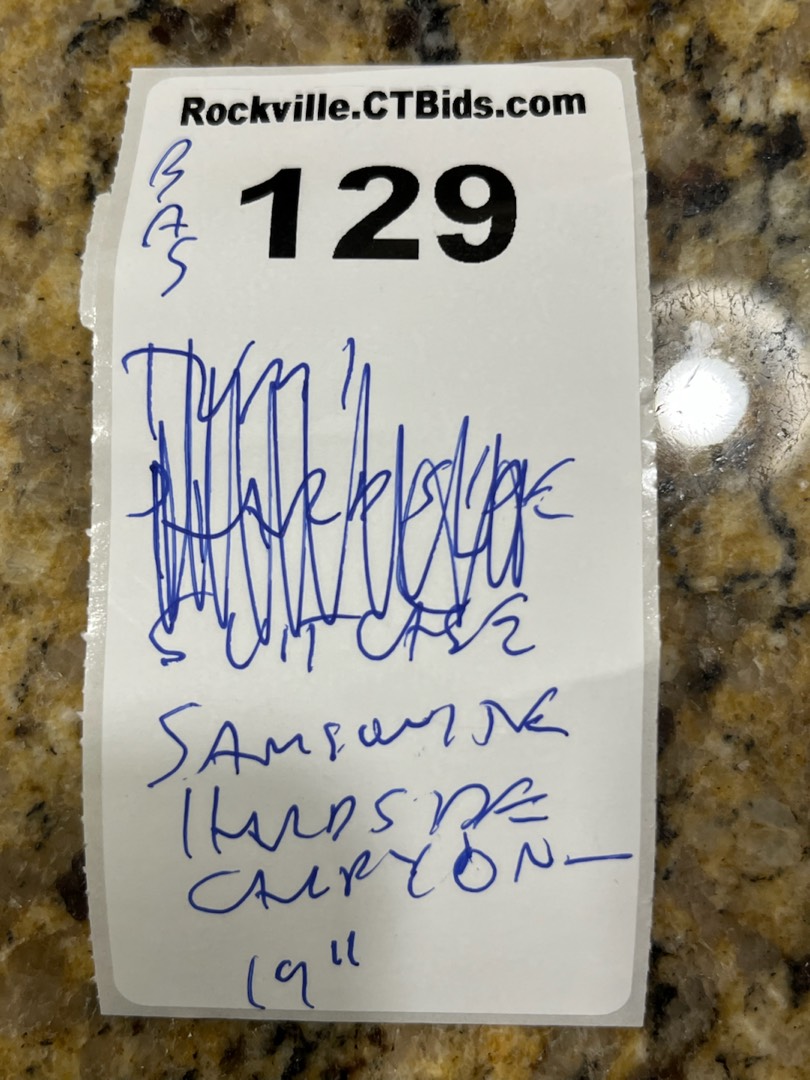 Rockville.CTBids.com
129
BAS
HARDSIDE
SUITCASE
SAMSONITE
HARDSIDE
CARRYON—
19"